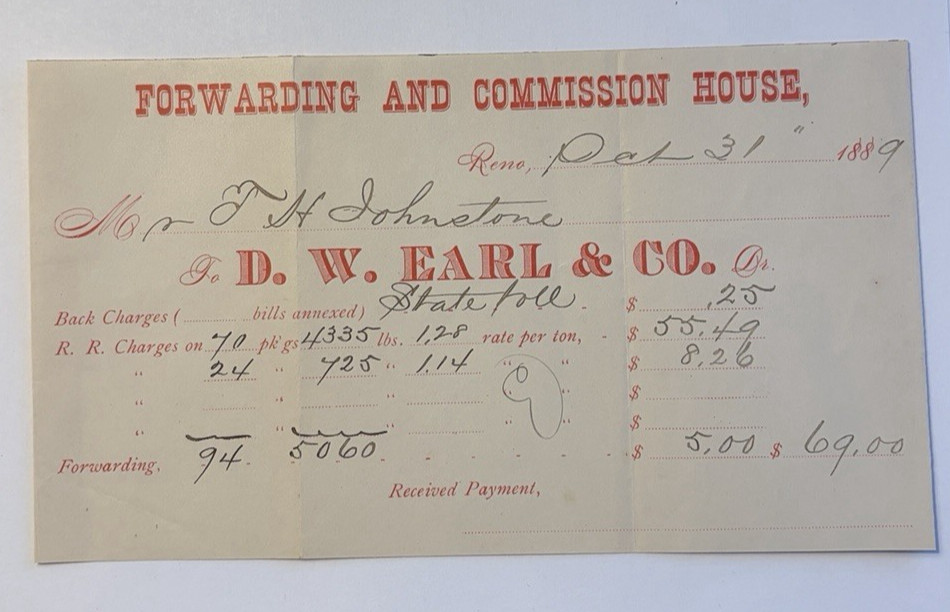 FORWARDING AND COMMISSION HOUSE,
Reno, Oct 31" 1889
Mr T H Johnstone
To D. W. EARL & CO. Dr.
Back Charges ( bills annexed) State toll. $ .25
R. R. Charges on 70 pk'gs 4335 lbs. 1,28 rate per ton, - $ 55.49
" 24 " 725 " 1.14 " " $ 8,26
" " " $
" " " " " $
Forwarding, 94. 5060. - - - - - $ 5,00 $ 69.00
Received Payment,